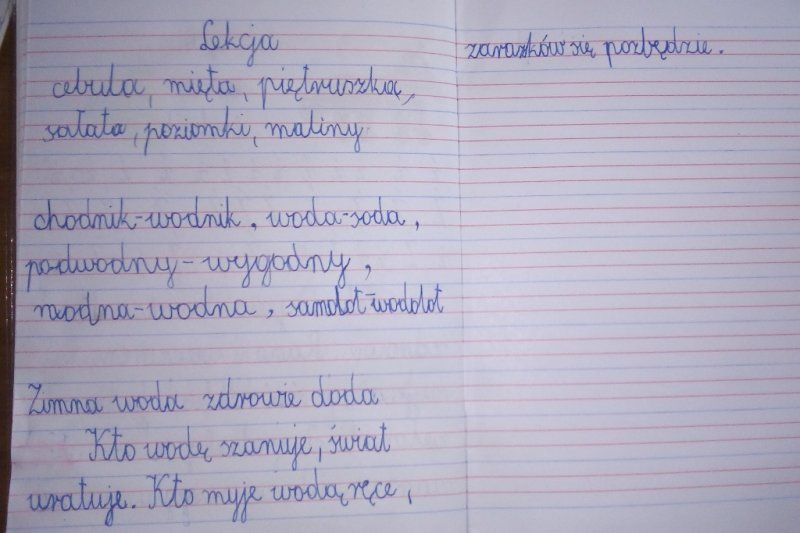 Lekcja
cebula, mięta, piętruszka,
sałata, poziomki, maliny
chodnik-wodnik, woda-soda,
podwodny-wygodny,
modna-wodna, samolot-wodolot
Zimna woda zdrowie doda
Kto wodę szanuje, świat
uratuje. Kto myje wodą ręce,
zarazków się pozbędzie.